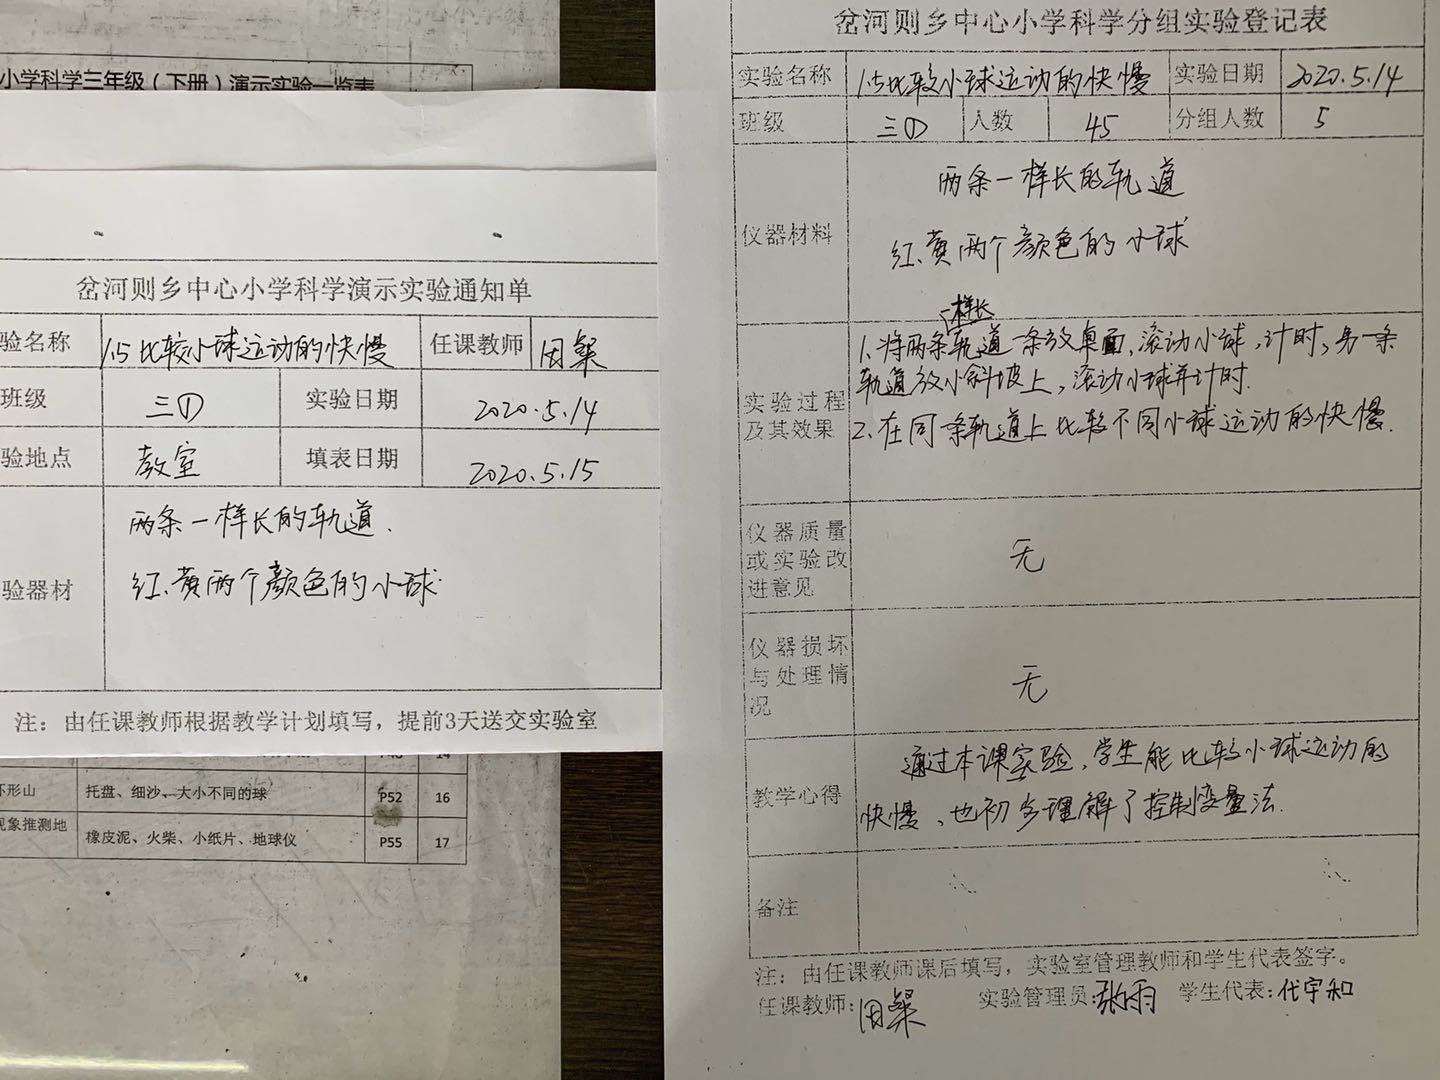 小学科学三年级（下册）演示实验一览表
岔河则乡中心小学科学演示实验通知单
验名称 1.5比较小球运动的快慢 任课教师
班级 三① 实验日期 2020.5.14
验地点 教室 填表日期 2020.5.15
验器材
两条一样长的轨道.
红、黄两个颜色的小球
注：由任课教师根据教学计划填写，提前3天送交实验室
环形山 托盘、细沙、大小不同的球 P52 16
现象推测地 橡皮泥、火柴、小纸片、地球仪 P55 17
岔河则乡中心小学科学分组实验登记表
实验名称 1.5比较小球运动的快慢 实验日期 2020.5.14
班级 三① 人数 45 分组人数 5
仪器材料
两条一样长的轨道
红、黄两个颜色的小球
实验过程
及其效果
一样长
1.将两条轨道一条放桌面、滚动小球，计时，另一条
轨道放小斜坡上，滚动小球并计时.
2.在同一条轨道上比较不同小球运动的快慢.
仪器质量
或实验改
进意见
无
仪器损坏
与处理情
况
无
教学心得
通过本课实验，学生能比较小球运动的
快慢、也初步理解了控制变量法.
备注
注：由任课教师课后填写，实验室管理教师和学生代表签字。
任课教师: 实验管理员:张雨 学生代表:代宇和